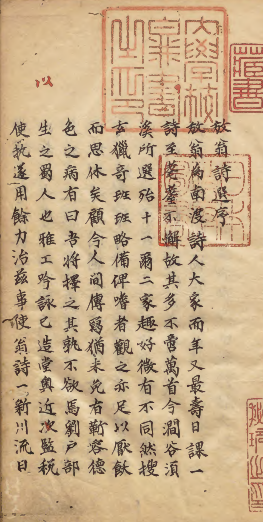 放翁詩選序
放翁為南渡詩人大家而年又最壽日課一
詩至耄耋不懈故其多不啻萬首今澗谷須
溪所選殆十一爾二家趣好微有不同然搜
玄獵奇班班略備碑嗜者觀之亦足以厭飫
而思休矣顧今人間傳寫猶未免有蘄容德
色之病有曰吾將擇之其孰不欲焉劉戶部
生之蜀人也雅工吟詠已造堂奧近次監稅
使軌遂用餘力治茲事使翁詩一新川流日
藏書